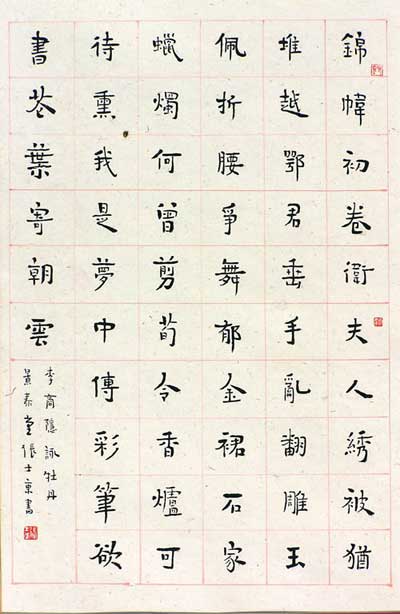 錦幃初卷衛夫人綉被猶
堆越鄂君垂手亂翻雕玉
佩折腰爭舞郁金裙石家
蠟燭何曾剪荀令香爐可
待熏我是夢中傳彩筆欲
書花葉寄朝雲
李商隱詠牡丹
堂張士東書